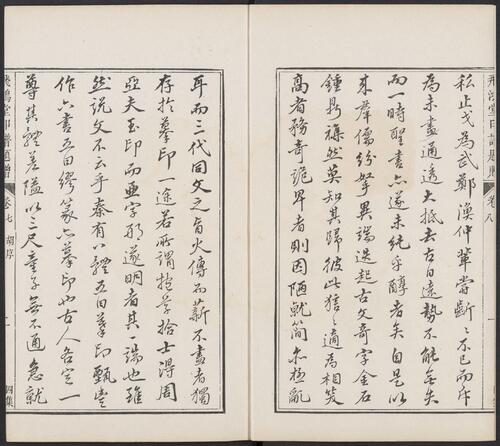 卷八
私止戈為武鄭漁仲輩嘗斷〻不已而斥
為未盡通透大抵去古日遠勢不能無失
而一時醒書亦遂未純乎醇者矣自是以
來羣儒紛拏異端迭起古文奇字金石
鍾鼎 然莫知其歸彼此狺〻適為相笑
高者務奇詭卑者則因陋就簡 極亂
耳而三代同文之旨火傳而薪不盡者獨
存於摹印一途若所謂 學拾士得周
亞夫玉印而亞字形遂明者其一端也雖
然說文不云乎秦有八體五曰摹印甄豐
作六書五曰繆篆亦摹印也古人各定一
尊其體差隘以三尺童子無不通急就
飛鴻堂印譜 卷七 胡序 一 四集